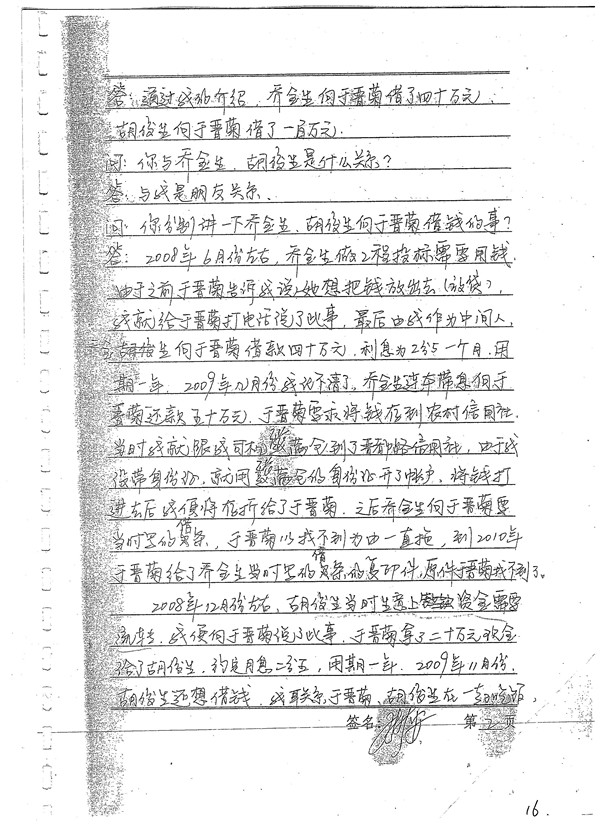 答：通过我的介绍，乔金生向于晋菊借了四十万元，
胡俊生向于晋菊借了一百万元.
问：你与乔金生、胡俊生是什么关系？
答：与我是朋友关系.
问：你分别讲一下乔金生、胡俊生向于晋菊借钱的事？
答：2008年6月份左右，乔金生做工程投标需要用钱.
由于之前于晋菊告诉我说，她想把钱放出去（放贷），
我就给于晋菊打电话说了此事，最后由我作为中间人，
生向于晋菊借款四十万元，利息为2分5一个月，用
期一年. 2009年 月份我 不清了，乔金生连本带息向于
晋菊还款五十万元，于晋菊要求将钱存到农村信用社.
当时我就跟我司机 仓到了晋 路信用社，由于我
没带身份证，就用 仓的身份证开了帐户，将钱打
进去后我便将存折给了于晋菊，之后乔金生向于晋菊要
当时写的借条，于晋菊以找不到为由一直拖，到2010年
于晋菊给了乔金生当时写的借条的复印件，原件于晋菊找不到了。
2008年12月份左右，胡俊生当时生意上资金需要
流转，我便向于晋菊说了此事，于晋菊拿了二十万元现金
给了胡俊生，约是月息二分五，用期一年. 2009年11月份，
胡俊生还想借钱，我联系于晋菊、胡俊生在一起吃饭，
签名： 第 2 页
16.